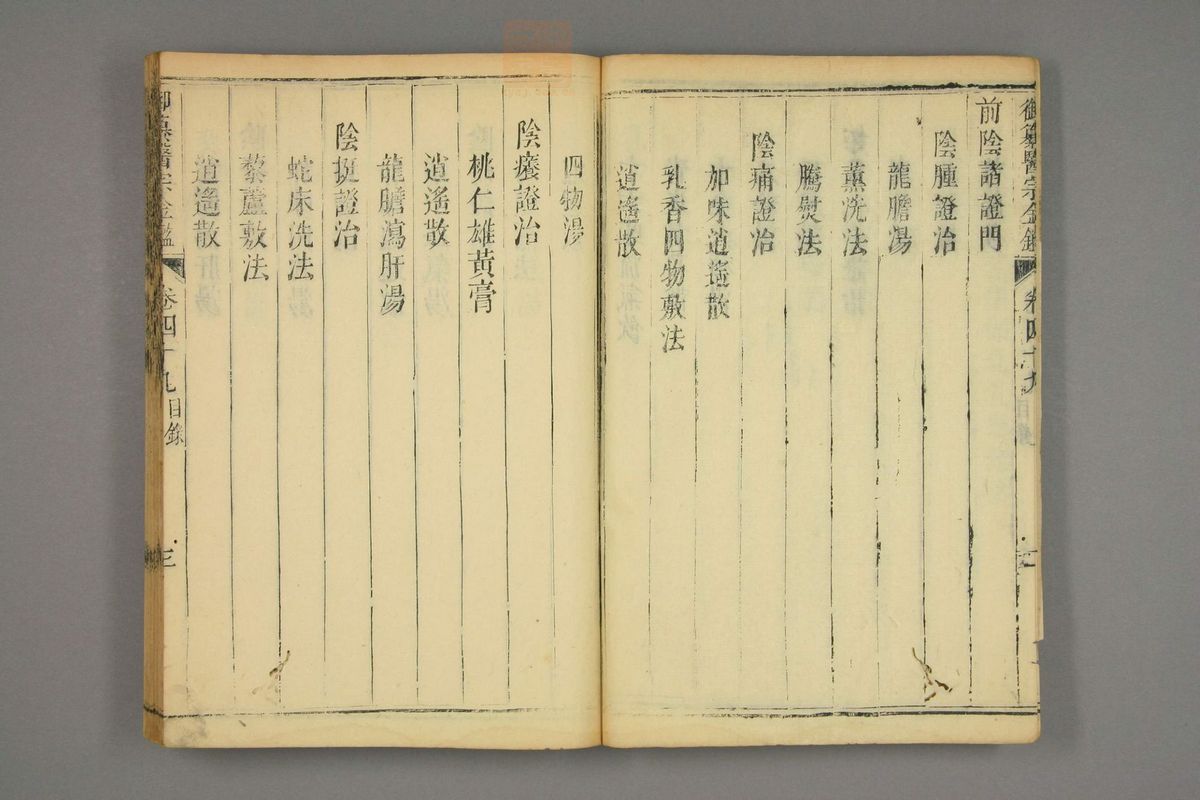 御纂醫宗金鑑 卷四十九 目錄 二
前陰諸證門
陰腫證治
龍膽湯
薰洗法
騰熨法
陰痛證治
加味逍遙散
乳香四物敷法
逍遙散
四物湯
陰癢證治
桃仁雄黃膏
逍遙散
龍膽瀉肝湯
陰挺證治
蛇床洗法
藜蘆敷法
逍遙散
御纂醫宗金鑑 卷四十九 目錄 三